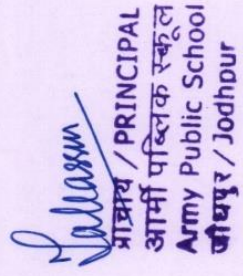 प्राचार्य / PRINCIPAL
आर्मी पब्लिक स्कूल
Army Public School
जोधपुर / Jodhpur